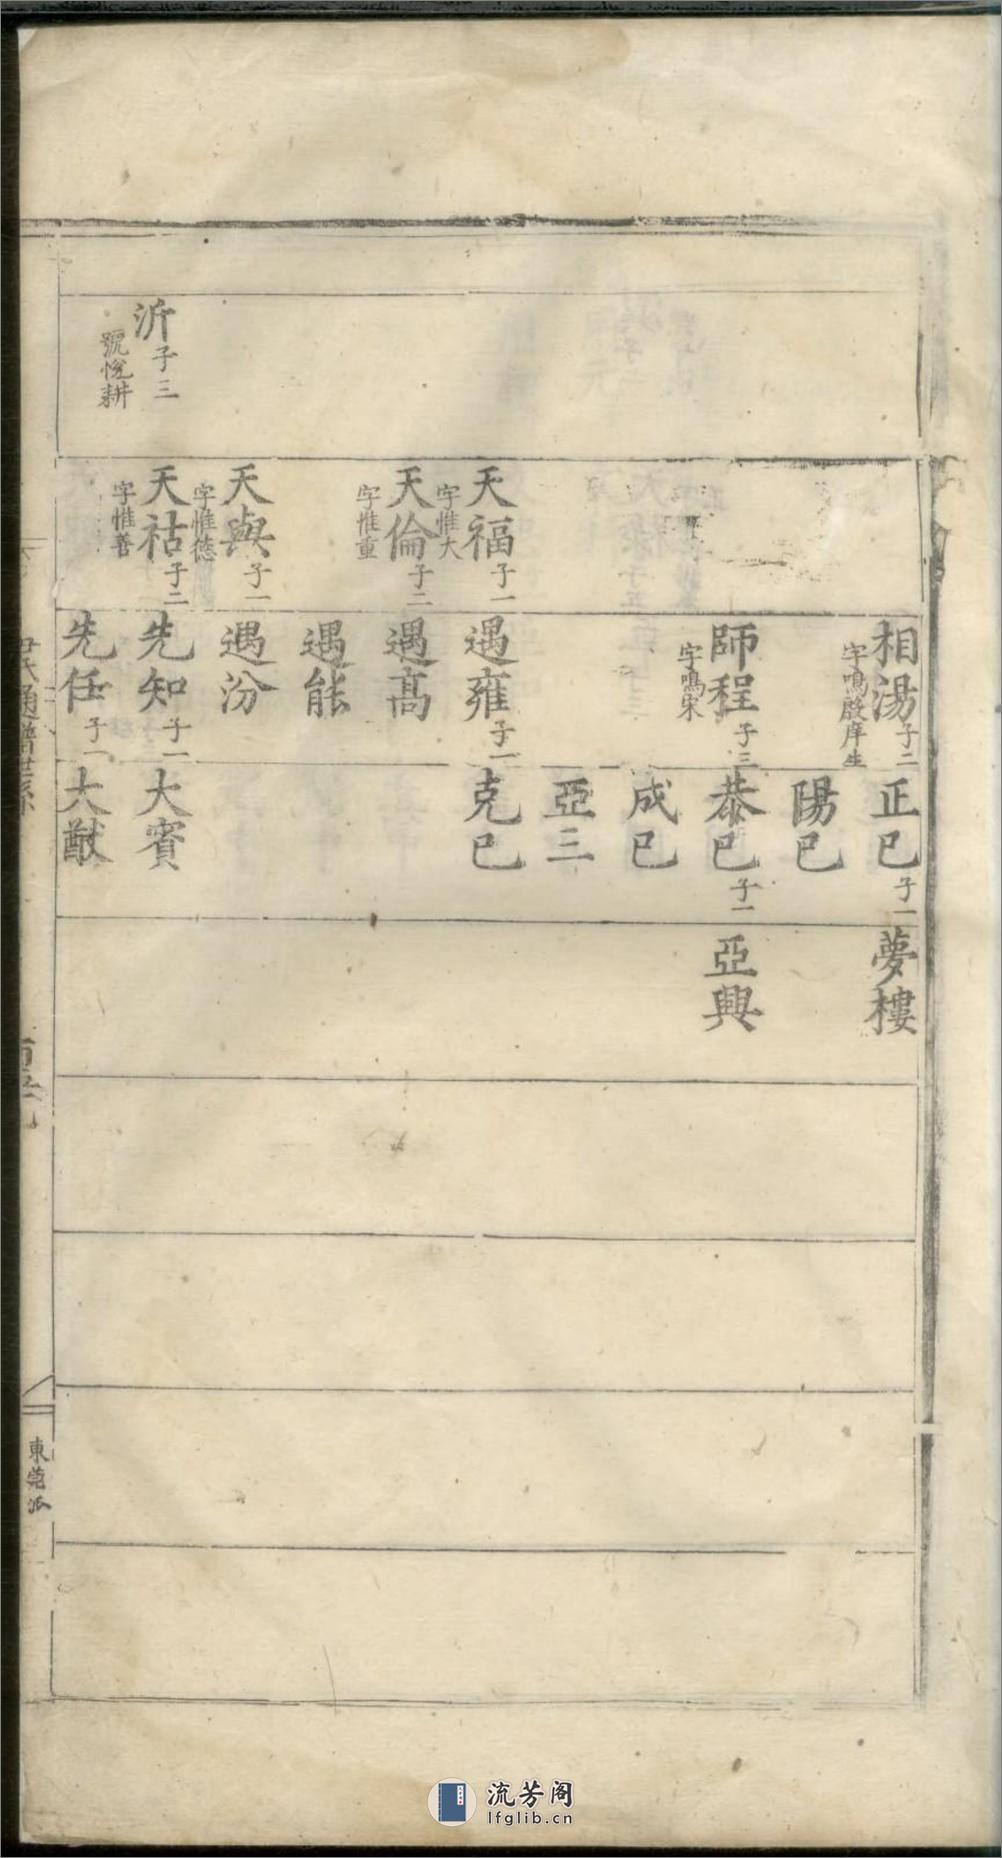 沂子三
號悅耕
天福子一
字惟大
天倫子二
字惟重
天與子一
字惟德
天祜子二
字惟善
相湯子二
字鳴殷庠生
師程子三
字鳴宋
遇雍子一
遇高
遇能
遇汾
先知子一
先任子一
正已子一
陽已
恭已子一
成已
亞三
克已
大賓
大猷
夢樓
亞興
尹氏通譜世系
東莞派
流芳阁
lfglib.cn